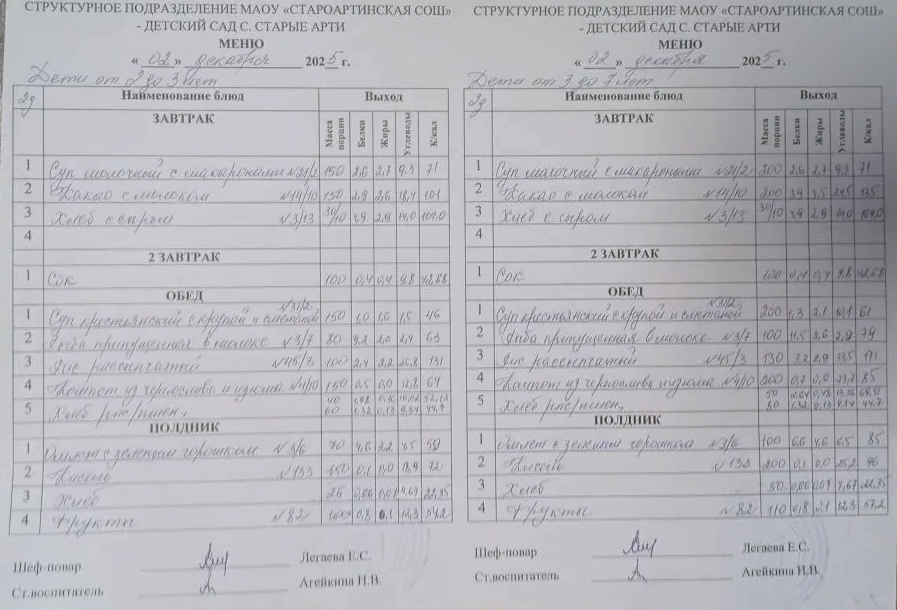 СТРУКТУРНОЕ ПОДРАЗДЕЛЕНИЕ МАОУ «СТАРОАРТИНСКАЯ СОШ»
- ДЕТСКИЙ САД С. СТАРЫЕ АРТИ
МЕНЮ
« 02 » декабря 2025 г.
Дети от 2 до 3 лет
2д Наименование блюд Выход
ЗАВТРАК Масса порции Белки Жиры Углеводы К/кал
1 Суп молочный с макаронами №21/2 150 2,6 2,7 9,3 71
2 Какао с молоком №14/10 150 2,9 2,6 18,4 101
3 Хлеб с сыром №3/13 30/10 4,9 2,9 14,0 104,0
4
2 ЗАВТРАК
1 Сок 100 0,4 0,4 9,8 42,68
ОБЕД
1 Суп крестьянский с крупой и сметаной №31/2 150 1,0 1,6 7,5 46
2 Рыба припущенная в молоке №3/7 80 9,2 2,0 2,4 63
3 Рис рассыпчатый №45/3 100 2,4 2,2 25,8 131
4 Компот из чернослива и изюма №4/10 150 0,5 0,0 64
5 Хлеб рис/пшен, 40 60 1,32 0,13 44,7
ПОЛДНИК
1 Омлет с зеленым горошком №3/6 70 4,6 3,2 4,5 59
2 Кисель №133 150 0,1 0,0 18,9 72
3 Хлеб 25 0,06 0,07 4,67 22,35
4 Фрукты №82 100 0,8 0,1 12,3 57,2
Шеф-повар Легаева Е.С.
Ст.воспитатель Агейкина Н.В.
СТРУКТУРНОЕ ПОДРАЗДЕЛЕНИЕ МАОУ «СТАРОАРТИНСКАЯ СОШ»
- ДЕТСКИЙ САД С. СТАРЫЕ АРТИ
МЕНЮ
« 02 » декабря 2025 г.
Дети от 3 до 7 лет
2д Наименование блюд Выход
ЗАВТРАК Масса порции Белки Жиры Углеводы К/кал
1 Суп молочный с макаронами №21/2 200 2,6 2,7 9,3 71
2 Какао с молоком №14/10 200 3,9 3,5 24,5 135
3 Хлеб с сыром №3/13 30/10 4,9 2,9 14,0 104,0
4
2 ЗАВТРАК
1 Сок 100 0,4 0,4 9,8 42,68
ОБЕД
1 Суп крестьянский с крупой и сметаной №31/2 200 1,3 2,1 10,1 61
2 Рыба припущенная в молоке №3/7 100 11,5 2,6 2,9 79
3 Рис рассыпчатый №45/3 130 3,2 2,9 33,5 171
4 Компот из чернослива и изюма №4/10 200 0,7 0,0 85
5 Хлеб рис/пшен, 50 80 1,32 0,13 44,7
ПОЛДНИК
1 Омлет с зеленым горошком №3/6 100 6,6 4,6 6,5 85
2 Кисель №133 200 0,1 0,0 25,2 96
3 Хлеб 50 0,06 0,07 4,67 22,35
4 Фрукты №82 110 0,8 0,1 12,3 57,2
Шеф-повар Легаева Е.С.
Ст.воспитатель Агейкина Н.В.